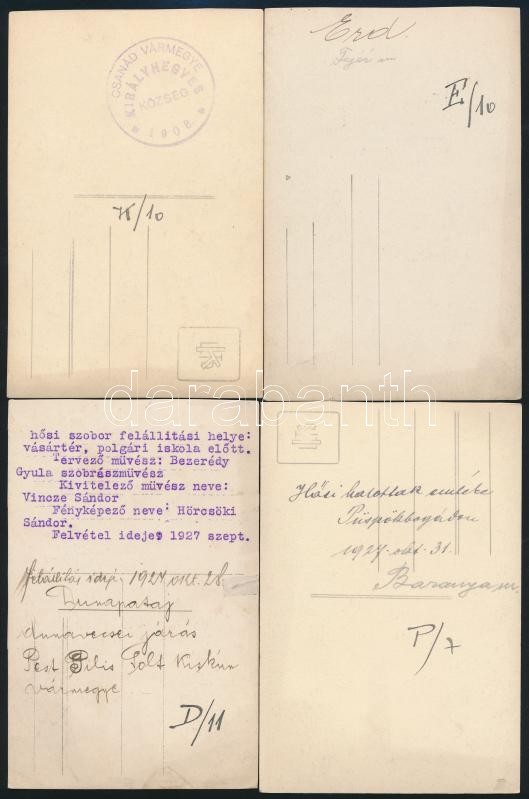 CSANÁD VÁRMEGYE
KIRÁLYHEGYES
KÖZSÉG
* 1908. *
K/10
Erd.
Fejér m
E/10
hősi szobor felállitási helye:
vásártér, polgári iskola előtt.
Tervező művész: Bezerédy
Gyula szobrászművész
Kivitelező művész neve:
Vincze Sándor
Fényképező neve: Hörcsöki
Sándor.
Felvétel ideje: 1927 szept.
Felállítás ideje, 1927 okt. 28.
Dunapataj
dunavecsei járás
Pest Pilis Solt Kiskun
vármegye
D/11
Hősi halottak emléke
Püspökbogádon
1927. okt. 31.
Baranya m.
P/7
darabanth